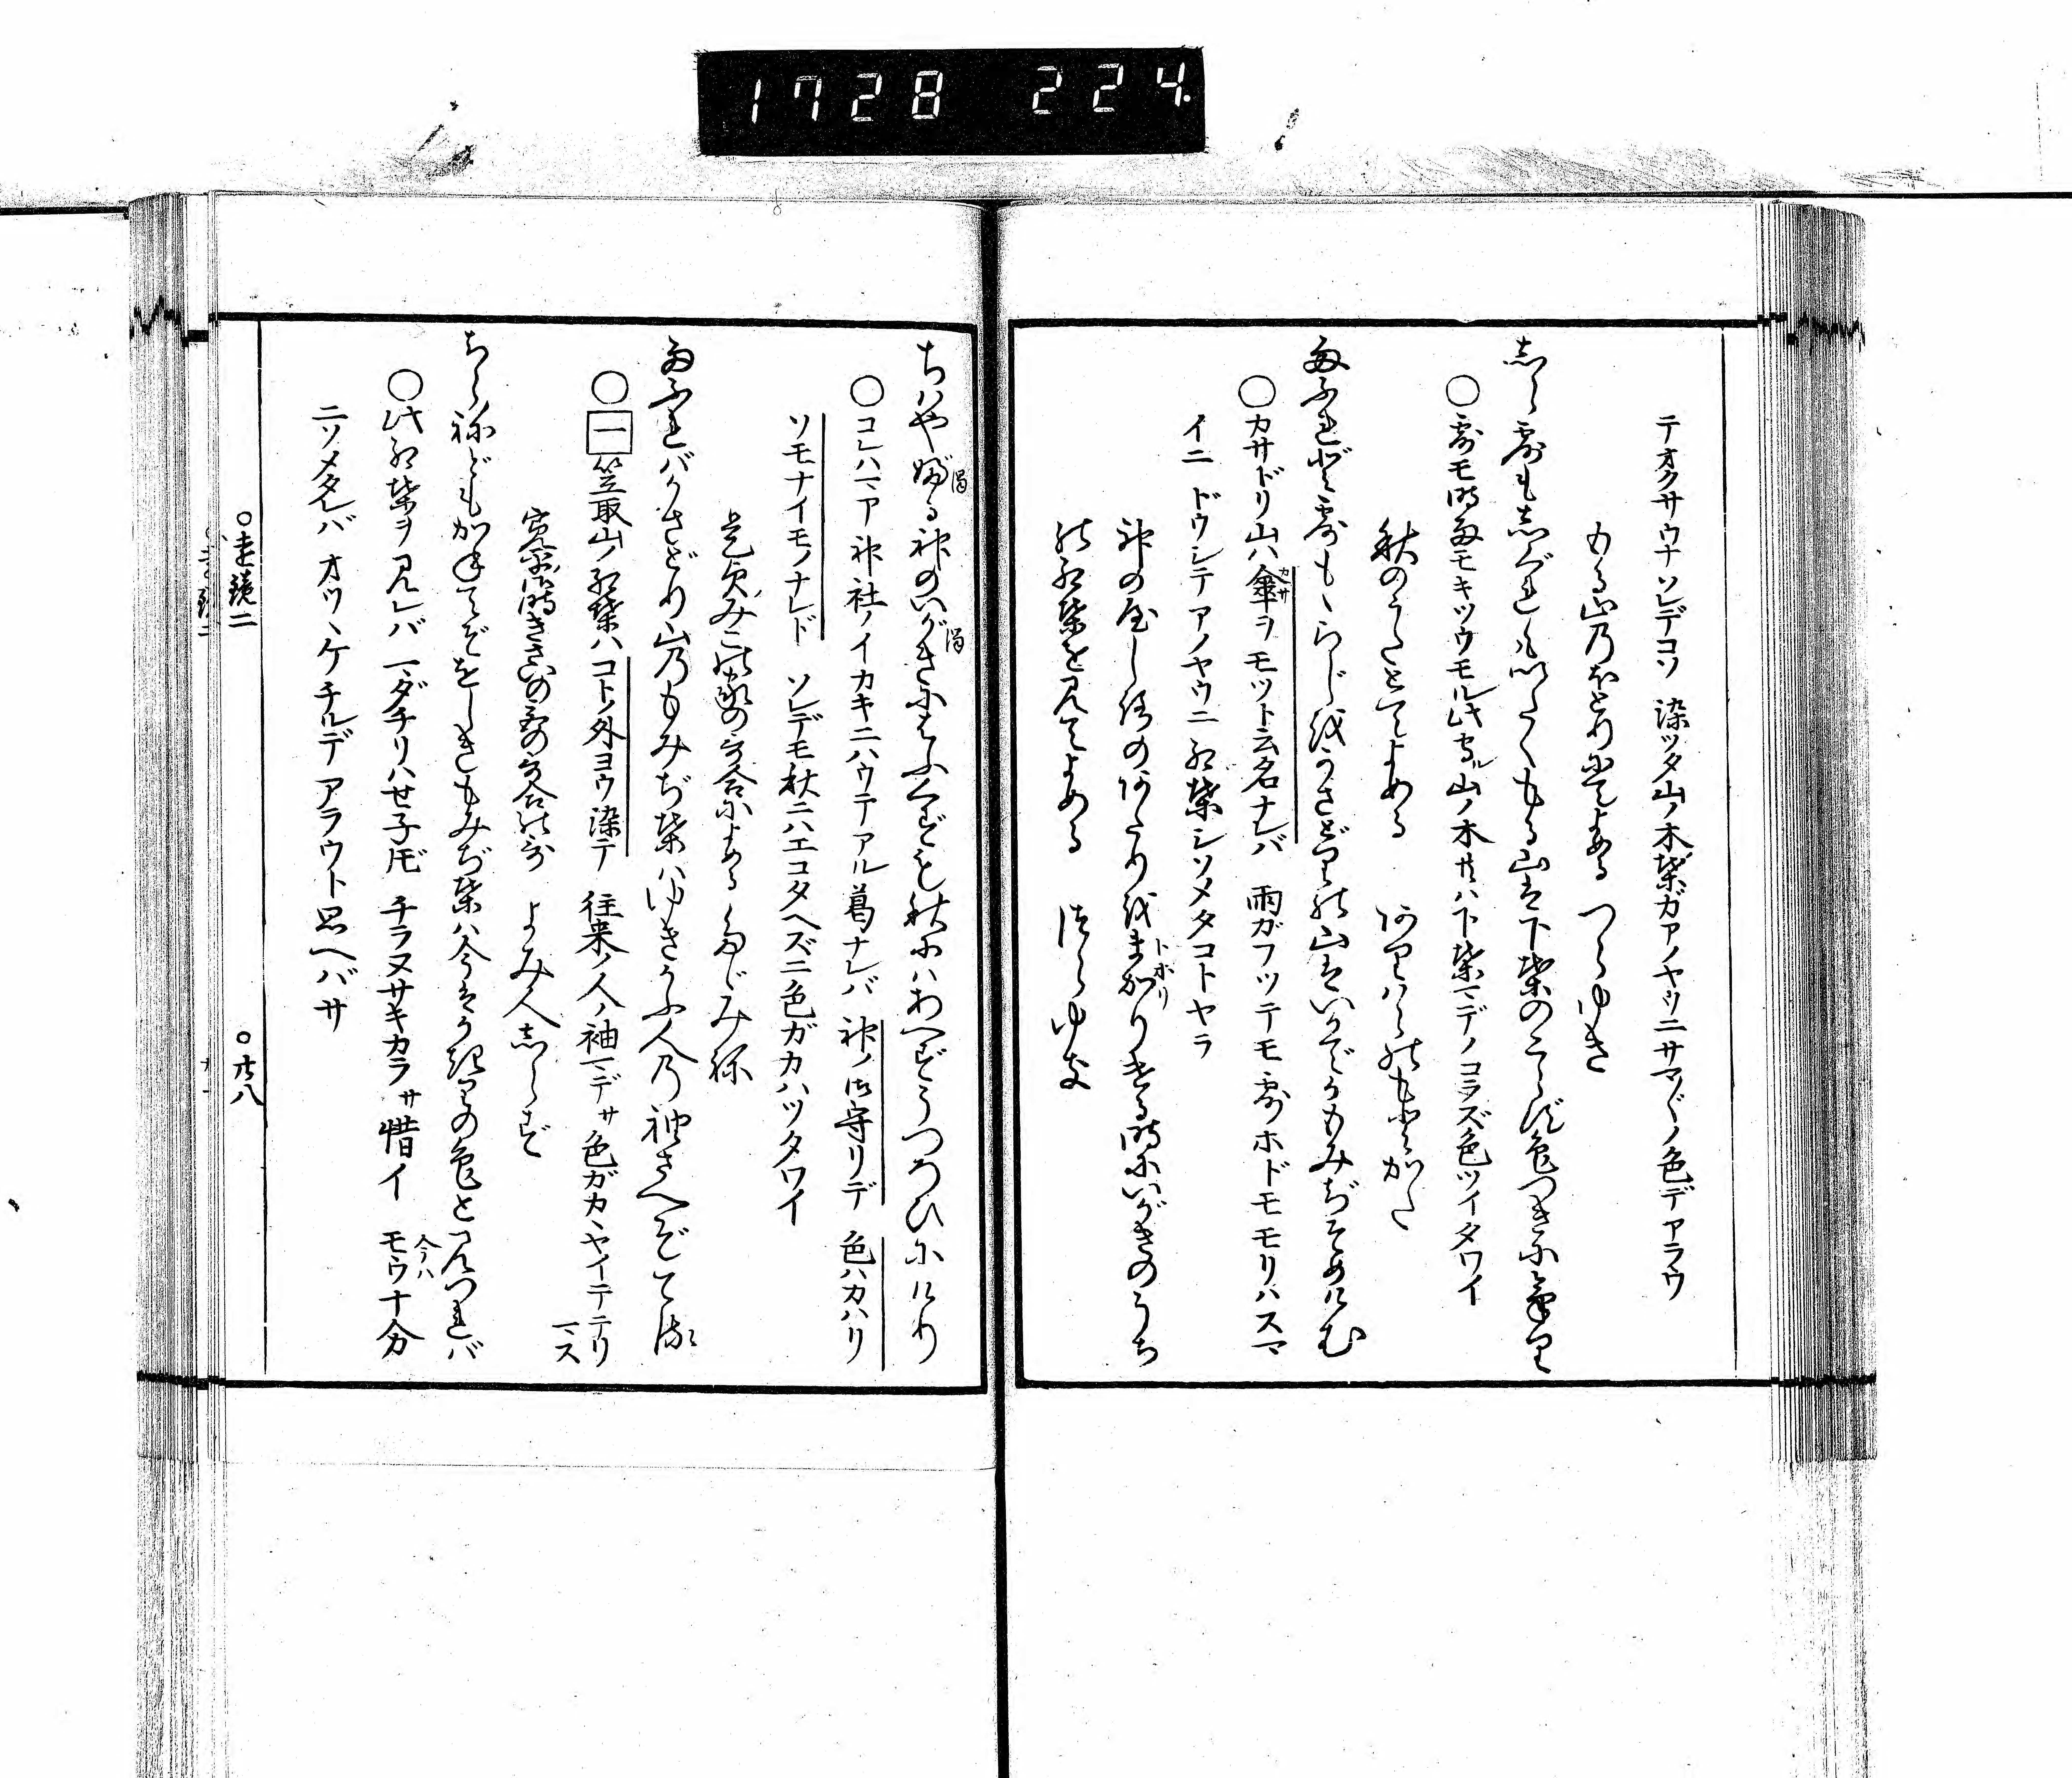 1728 224
テオクサウナソレデコソ 染ッタ山ノ木葉ガアノヤウニサマ〲ノ色デアラウ
もる山のほとりにてよめる つらゆき
しら露も志ぐれもいたくもる山は下葉のこらず色づきにけり
○露モ時雨モキツウモル此守ル山ノ木サハ下葉マデノコラズ色ツイタワイ
秋のうたとてよめる 在原のもとかた
雨ふれど露ももらじをかさどりの山はいかでかもみぢそめけむ
○カサドリ山ハ傘カサヲモツト云名ナレバ 雨ガフツテモ露ホドモモリハスマ
イニ ドウシテアノヤウニ 紅葉シソメタコトヤラ
神のやしろのあたりをまかりトホリける時にいがきのうち
の紅葉を見てよめる つらゆき
ちはやぶる神のいがきにはふくずも秋にはあへずうつろひにけり
○コレハマア神社ノイカキニハウテアル葛ナレバ 神ノ御守リデ 色ハカハリ
ソモナイモノナレド ソレデモ秋ニハエコタヘズニ色ガカハツタワイ
是貞みこの家の哥合によめる たゞみね
雨ふればかさとり山のもみぢ葉はゆきかふ人の袖さへぞてる
○一笠取山ノ紅葉ハコトノ外ヨウ染テ 往来ノ人ノ袖マデサ色ガカヽヤイテテリ
マス
寛平御時きさいの宮の哥合の哥 よみ人志らず
ちらねどもかねてぞをしきもみぢ葉は今はかぎりの色と見つれば
○此紅葉ヲ見レバ マダチリハセ子𪜈 チラヌサキカラサ惜イ 今ハモウ十分
ニソメタレバ オツヽケチルデアラウト思ヘバサ
○遠鏡二 ○廿八